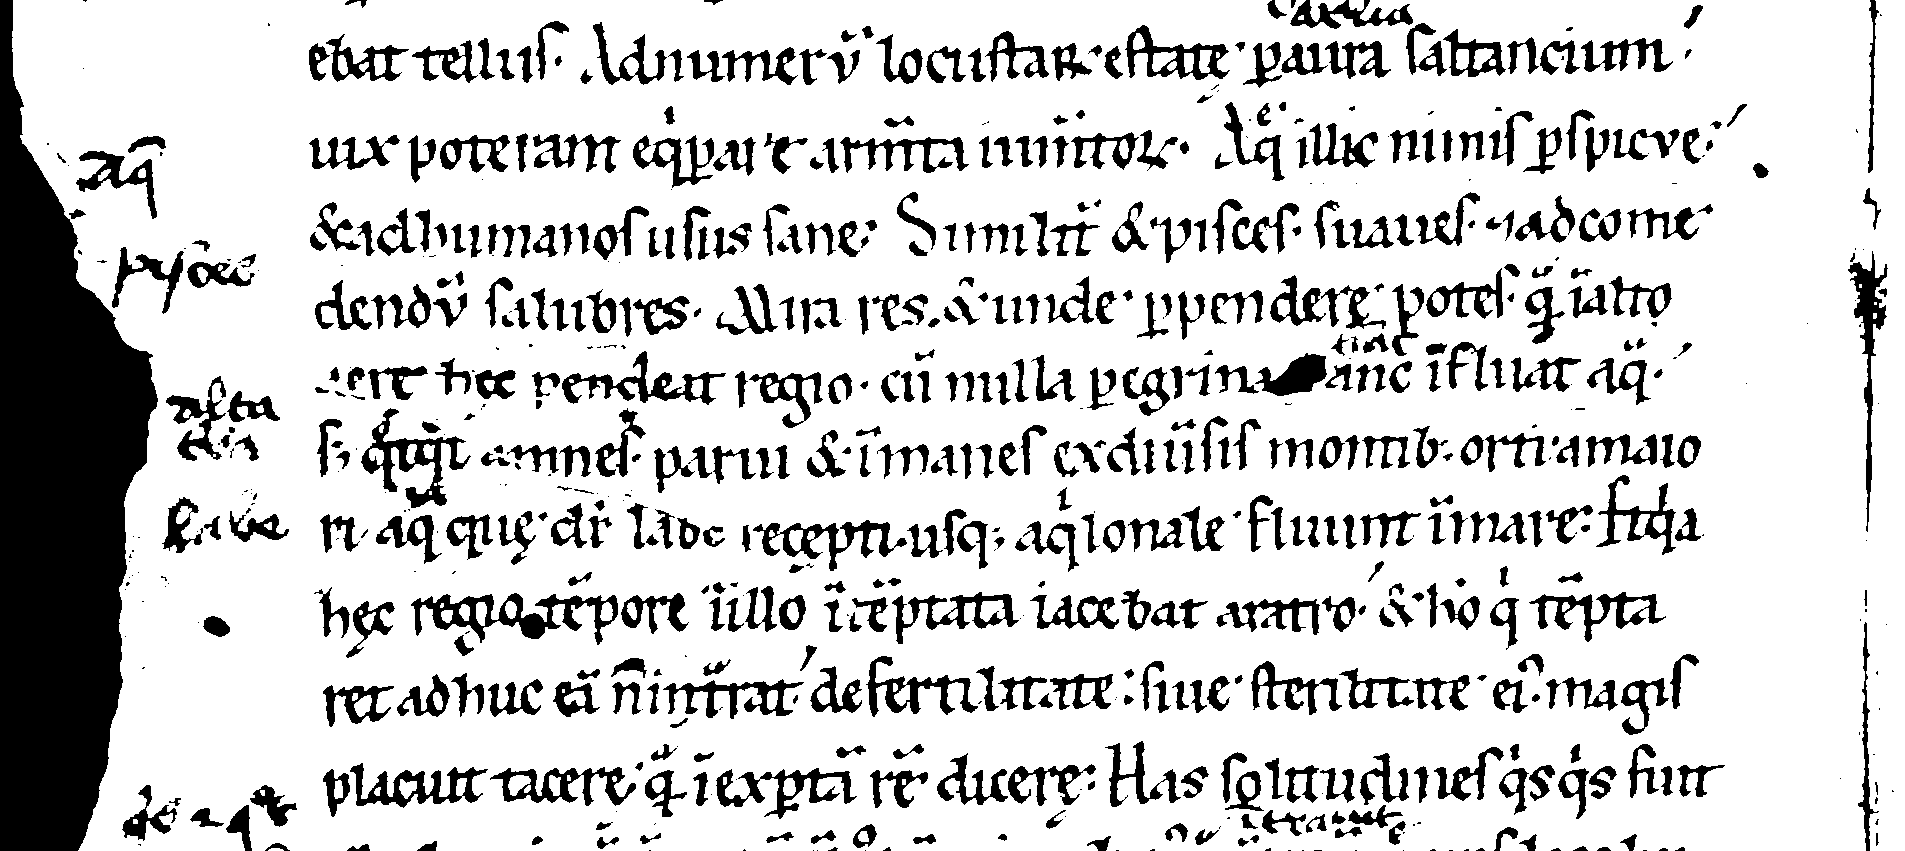 ebat tellus. Ad numerū locustaꝝ estate ꝑ aura saltancium
uix poterant eqͥꝑare armͤta iumͤtoꝝ. Aqͤ illic nimis ꝑspicve
aq̄
& ad humanos usus sane. Similiť & pisces suaues ⁊ ad come
pisces
dendū salubres. Mira res. & unde ꝑpendere potes qᷓ ī alto
aere hec pendeat regio. cū nulla ꝑegrina hanc īfluat aqᷓ.
alta
s; qͥ amnes parui & īmanes ex diūsis montib; orti amaio
ri aqᷓ quę dr̄ labe recepti usq; aqͥlonale fluunt ī mare. Itaqͣ
labe
hęc regio tēpore ī illo ītēptata iacebat aratro. & hō qͥ tēpta
ret adhuc eā n̄ intᷓrat de fertilitate siue sterilitate ei᾿ magis
placuit tacere qᷓ īexꝑtā rē dicere. Has solitudines qͥsqͥs fuit